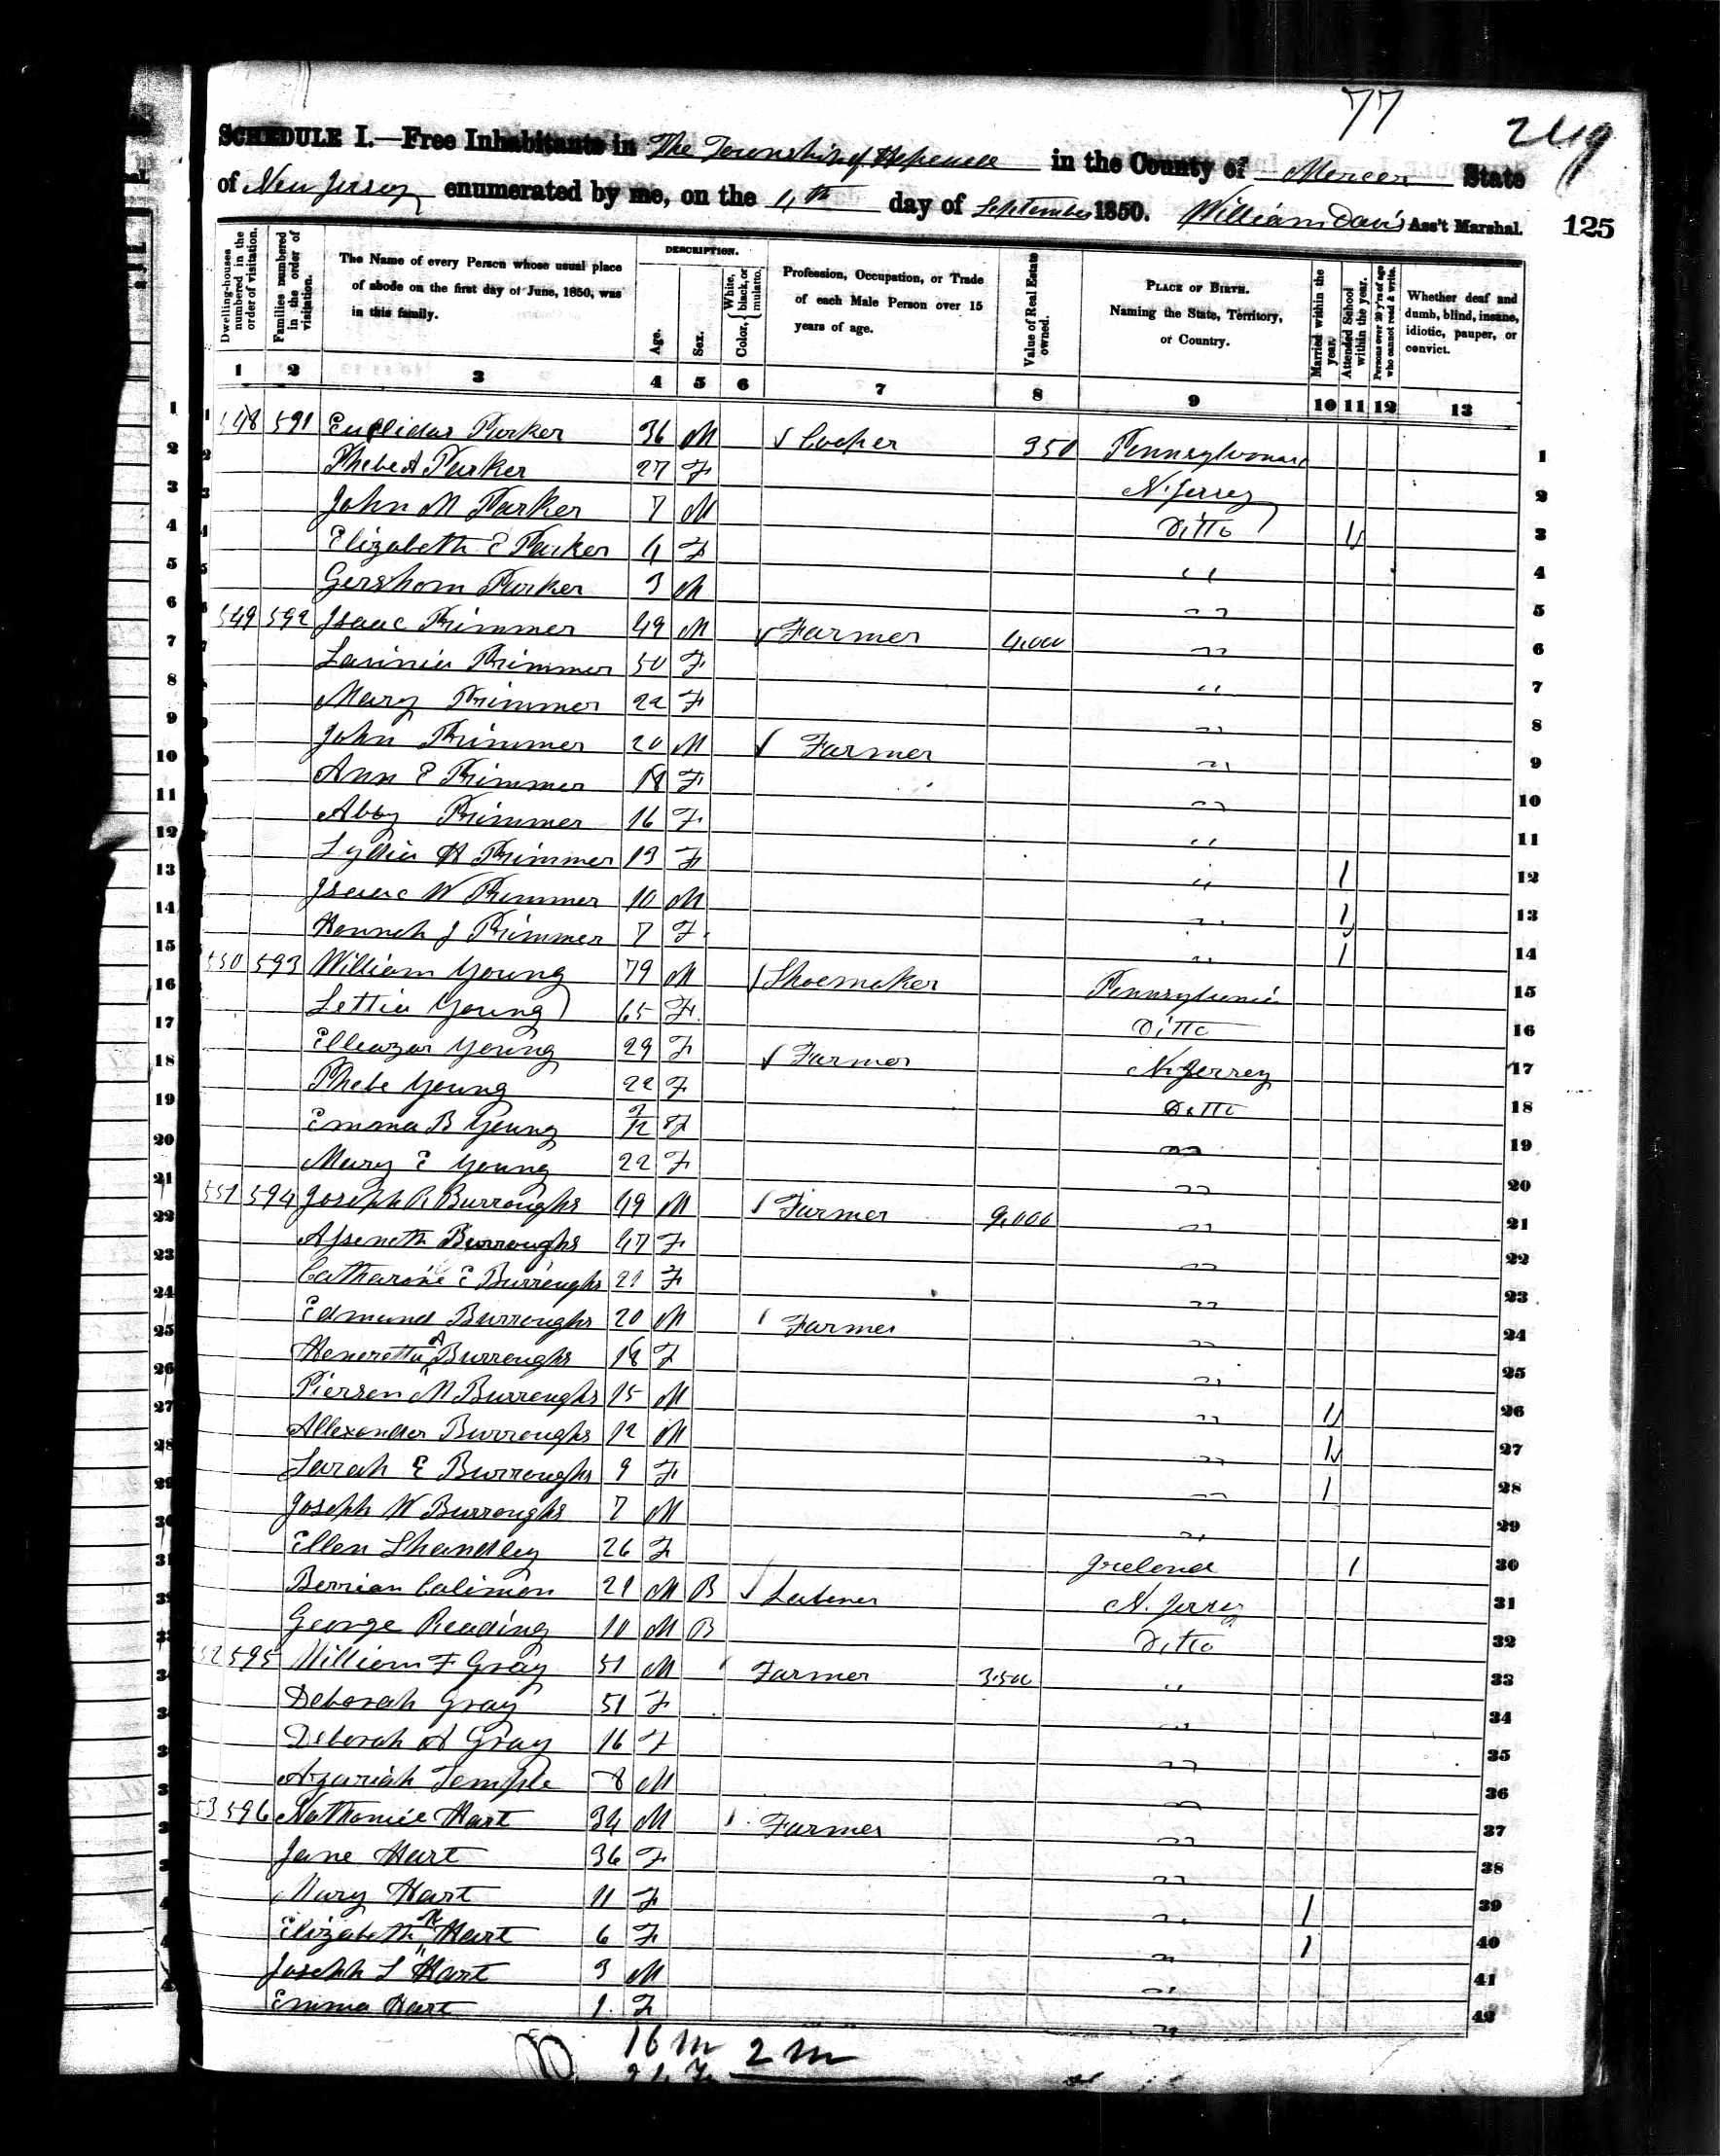 77
249
SCHEDULE I.—Free Inhabitants in The Township of Hopewell in the County of Mercer State
of New Jersey enumerated by me, on the 4th day of September 1850. William Davis Ass't Marshal. 125
Dwelling-houses numbered in the order of visitation.
Families numbered in the order of visitation.
The Name of every Person whose usual place of abode on the first day of June, 1850, was in this family.
DESCRIPTION.
Age.
Sex.
Color, { White, black, or mulatto.
Profession, Occupation, or Trade of each Male Person over 15 years of age.
Value of Real Estate owned.
PLACE OF BIRTH. Naming the State, Territory, or Country.
Married within the year.
Attended School within the year.
Persons over 20 y'rs of age who cannot read & write.
Whether deaf and dumb, blind, insane, idiotic, pauper, or convict.
1 2 3 4 5 6 7 8 9 10 11 12 13
1 548 591 Euclidas Parker 36 M Cooper 350 Pennsylvania 1
2 Phebe A Parker 27 F N. Jersey 2
3 John M Parker 7 M Ditto 1 3
4 Elizabeth E Parker 4 F " 4
5 Gershom Parker 3 M " 5
6 549 592 Isaac Primmer 49 M Farmer 4,000 " 6
7 Lavinia Primmer 50 F " 7
8 Mary Primmer 22 F " 8
9 John Primmer 20 M Farmer " 9
10 Ann E Primmer 18 F " 10
11 Abby Primmer 16 F " 11
12 Lydia H Primmer 13 F " 1 12
13 Isaac W Primmer 10 M " 1 13
14 Hannah J Primmer 7 F " 1 14
15 550 593 William Young 79 M Shoemaker Pennsylvania 15
16 Lettia Young 65 F Ditto 16
17 Elleazar Young 29 F Farmer N. Jersey 17
18 Phebe Young 22 F Ditto 18
19 Emma B Young /12 F " 19
20 Mary E Young 22 F " 20
21 551 594 Joseph R Burroughs 49 M Farmer 9,000 " 21
22 Asseneth Burroughs 47 F " 22
23 Catharine E Burroughs 21 F " 23
24 Edmund Burroughs 20 M Farmer " 24
25 Heneretta A Burroughs 18 F " 25
26 Pierson M Burroughs 15 M " 1 26
27 Allexander Burroughs 12 M " 1 27
28 Sarah E Burroughs 9 F " 1 28
29 Joseph W Burroughs 7 M " 29
30 Ellen Shandley 26 F Ireland 1 30
31 Berrian Calimon 21 M B Laborer N. Jersey 31
32 George Reading 10 M B Ditto 32
33 52 595 William F Gray 51 M Farmer 3,500 " 33
34 Deborah Gray 51 F " 34
35 Deborah A Gray 16 F " 35
36 Azariah Temple 8 M " 36
37 53 596 Nathaniel Hart 34 M Farmer " 37
38 Jane Hart 36 F " 38
39 Mary Hart 11 F " 1 39
40 Elizabeth M Hart 6 F " 1 40
41 Joseph L Hart 3 M " 41
42 Emma Hart 1 F " 42
16 m 2 m